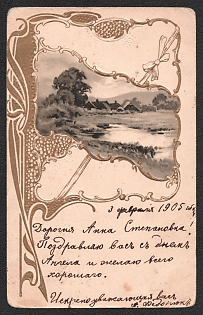 3 февраля 1905 г.
Дорогая Анна Степановна!
Поздравляю васъ съ днемъ
Ангела и желаю всего
хорошаго.
Искренноуважающая васъ
А.